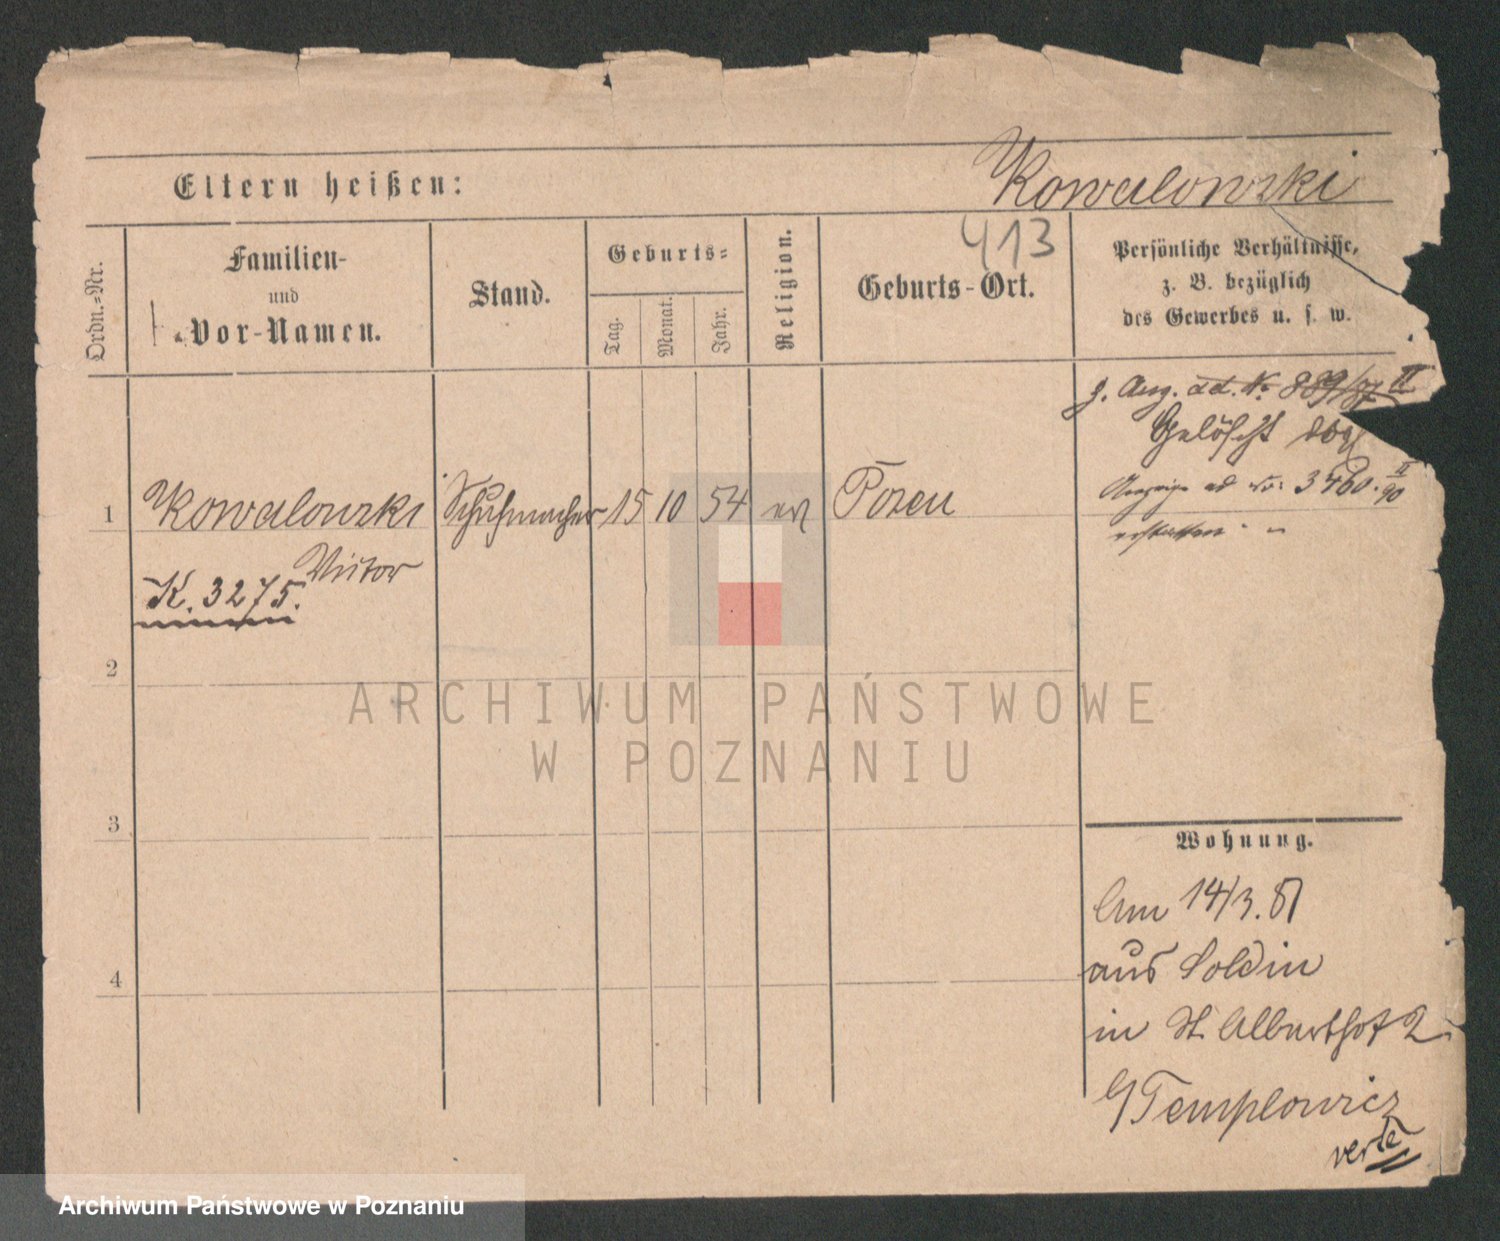 Kowalowski
Eltern heißen:
413
Ordn.-Nr.
Familien-
und
Vor-Namen.
Stand.
Geburts-
Tag.
Monat.
Jahr.
Religion.
Geburts-Ort.
Persönliche Verhältnisse,
z. B. bezüglich
des Gewerbes u. s. w.
z. Anz. ad. No 889/87 II
Gelöscht
Anzeige ad No: 3460. II/90
erstatten
1 Kowalowski Schuhmacher 15 10 54 Posen
Victor
K. 3275.
2
3
4
Wohnung.
Am 14/3. 81
aus Soldin
in St Adalberthof 2
b/ Templowicz
verte
ARCHIWUM PAŃSTWOWE
W POZNANIU
Archiwum Państwowe w Poznaniu